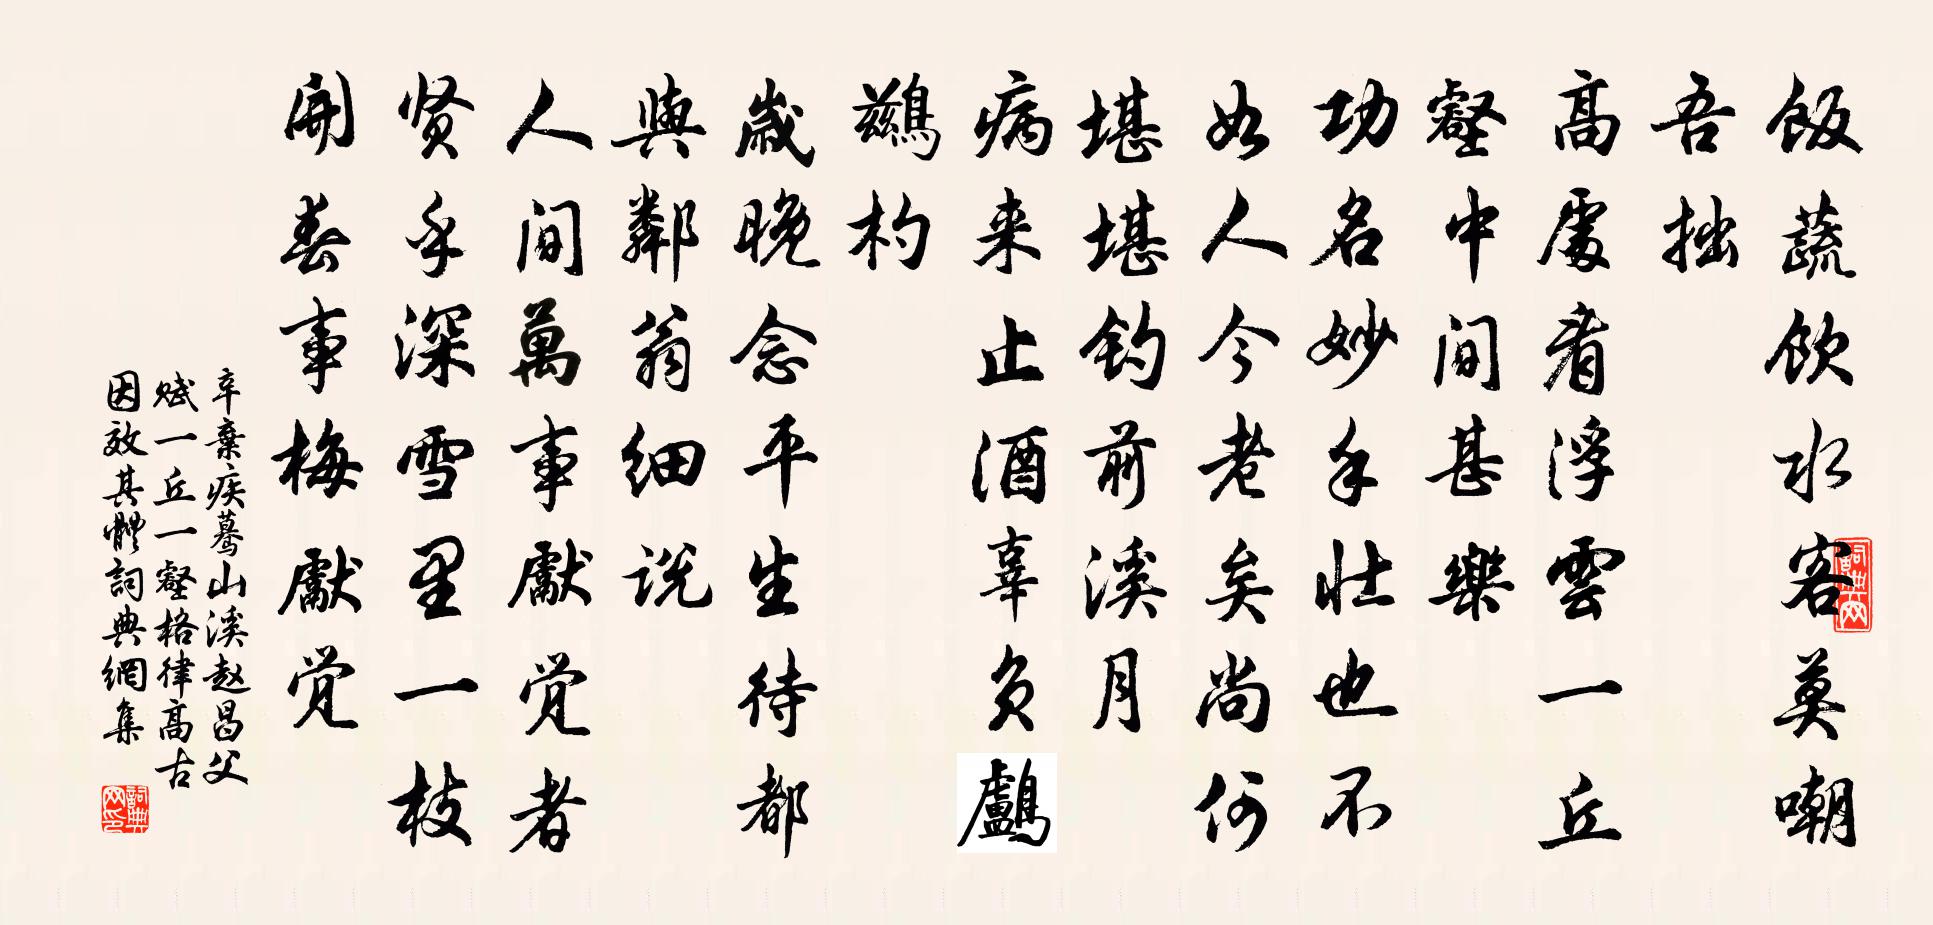 飯蔬飲水客莫嘲
吾拙
高處看浮雲一丘
壑中間甚樂
功名妙手壯也不
如人今老矣尚何
堪堪钓前溪月
病来止酒辜负鸕
鷀杓
歲晚念平生待都
與鄰翁细说
人间萬事獻觉者
贤乎深雪里一枝
開春事梅獻觉
辛棄疾蓦山溪赵昌父
赋一丘一壑格律高古
因效其體詞典網集
詞典网